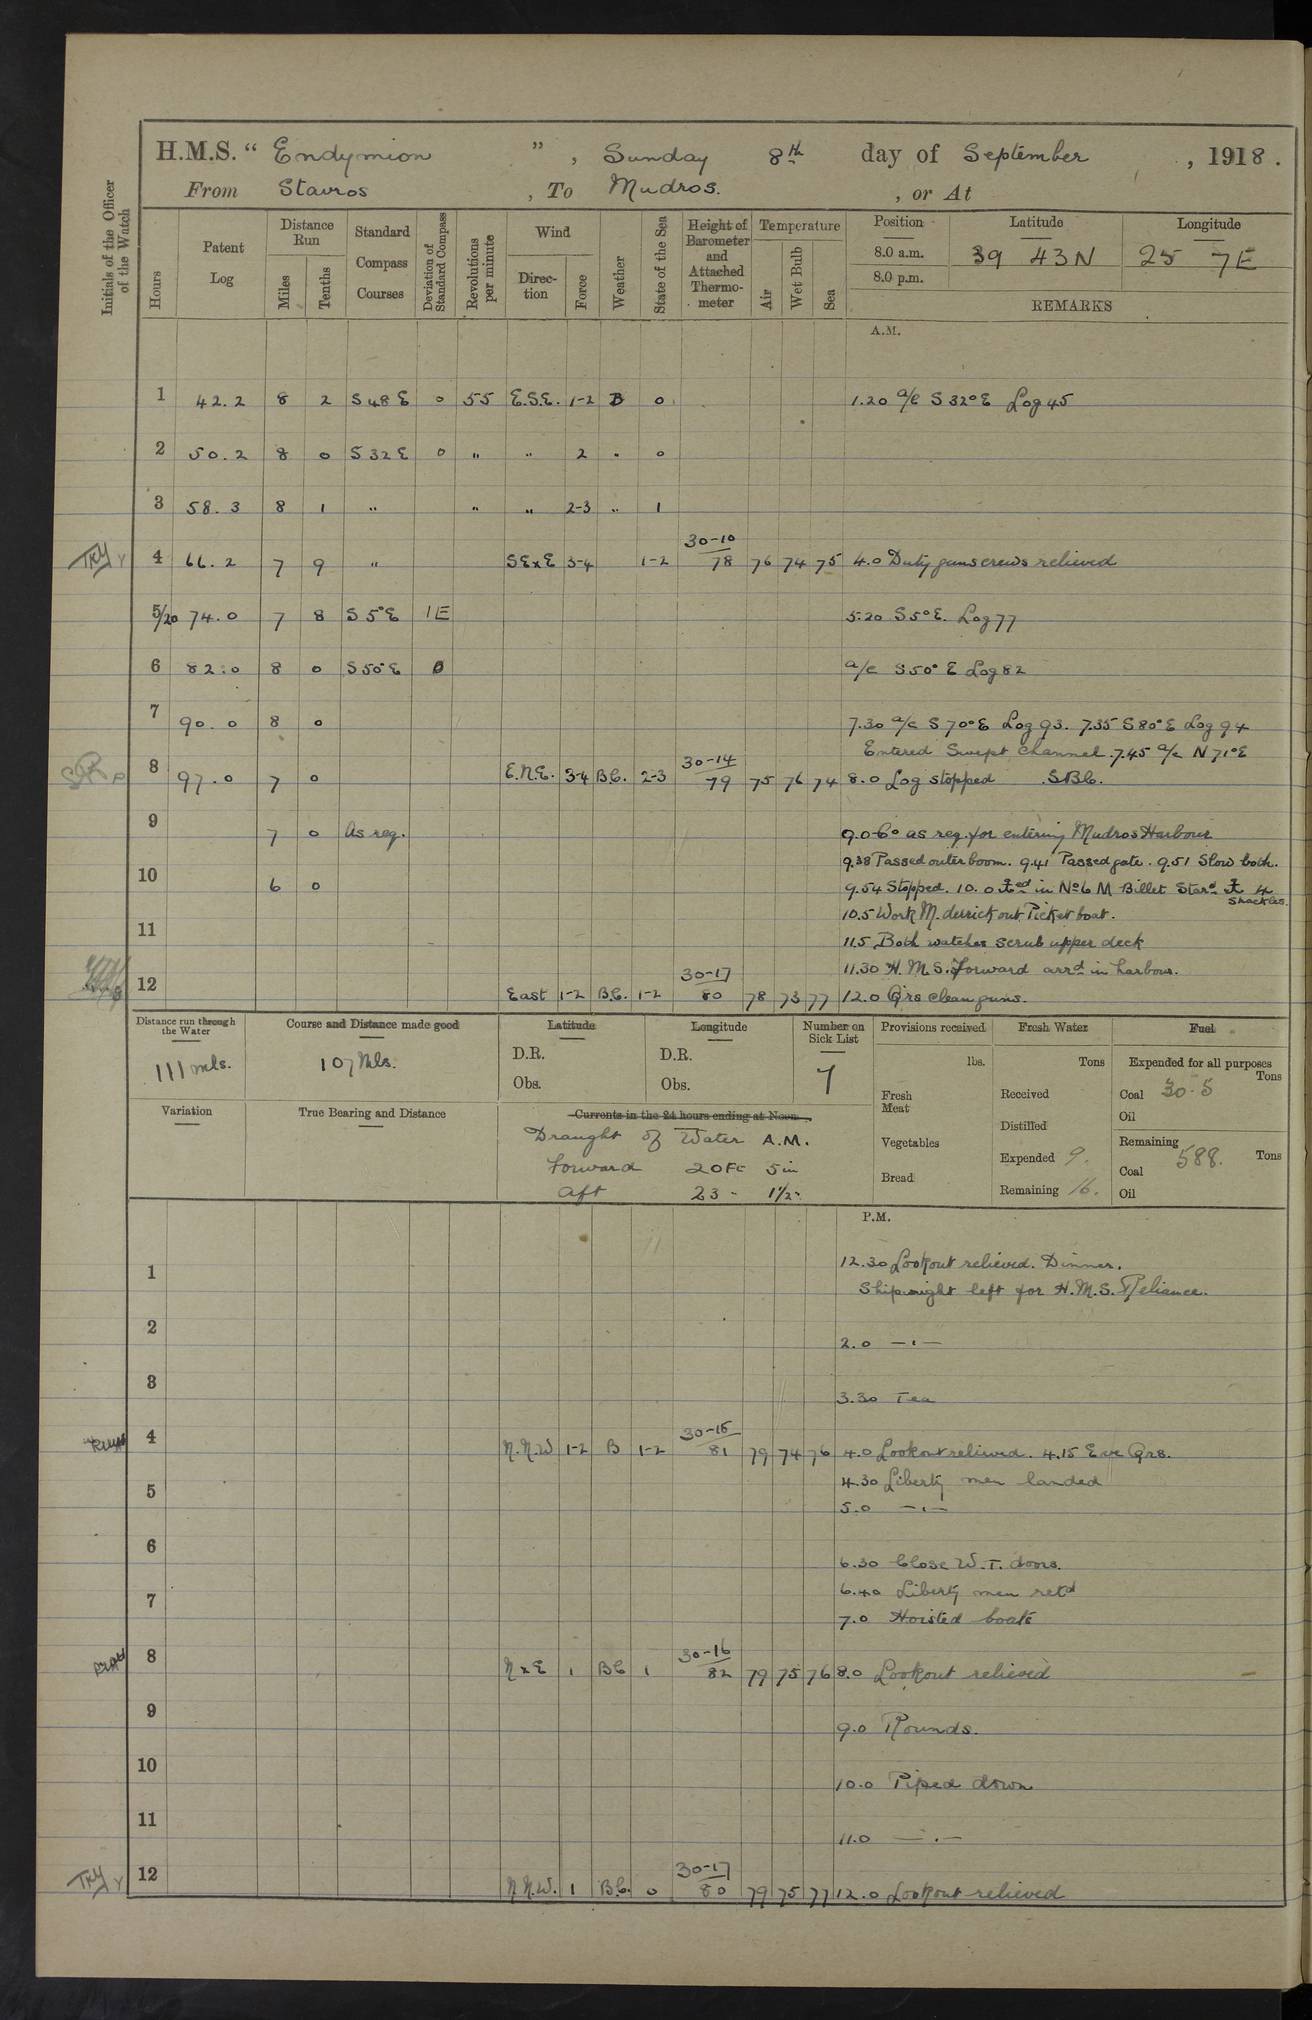 H.M.S. “ Endymion ” , Sunday 8th day of September , 1918.
From Stavros , To Mudros. , or At
Initials of the Officer of the Watch
Hours
Patent Log
Distance Run
Miles
Tenths
Standard Compass Courses
Deviation of Standard Compass
Revolutions per minute
Wind
Direction
Force
Weather
State of the Sea
Height of Barometer and Attached Thermometer
Temperature
Air
Wet Bulb
Sea
Position Latitude Longitude
8.0 a.m. 39 43 N 25 7 E
8.0 p.m.
REMARKS
A.M.
1 42.2 8 2 S 48 E 0 55 E.S.E. 1-2 B 0 1.20 a/c S 32° E Log 45
2 50.2 8 0 S 32 E 0 " " 2 " 0
3 58.3 8 1 " " " 2-3 " 1
30-10
4 66.2 7 9 " SExE 3-4 1-2 78 76 74 75 4.0 Duty guns crews relieved
5/20 74.0 7 8 S 5° E 1E 5.20 S 5° E. Log 77
6 82.0 8 0 S 50° E 0 a/c S 50° E Log 82
7 90.0 8 0 7.30 a/c S 70° E Log 93. 7.35 S 80° E Log 94
Entered Swept Channel. 7.45 a/c N 71° E
30-14
8 97.0 7 0 E.N.E. 3-4 B.C. 2-3 79 75 76 74 8.0 Log stopped SBC.
9 7 0 As req. 9.0 Co as req. for entering Mudros Harbour
9.38 Passed outer boom. 9.41 Passed gate. 9.51 Slow both.
10 6 0 9.54 Stopped. 10.0 ⚓ed in No 6 M Billet Stard ⚓ 4 shackles.
10.5 Work M. derrick out Picket boat.
11 11.5 Both watches scrub upper deck
11.30 H.M.S. Forward arrd in harbour.
30-17
12 East 1-2 B.C. 1-2 80 78 73 77 12.0 Qrs clean guns.
Distance run through the Water
111 mls.
Course and Distance made good
107 Mls.
Latitude
D.R.
Obs.
Longitude
D.R.
Obs.
Number on Sick List
7
Provisions received
lbs.
Fresh Meat
Vegetables
Bread
Fresh Water
Tons
Received
Distilled
Expended 9.
Remaining 16.
Fuel
Expended for all purposes
Tons
Coal 30.5
Oil
Remaining
Tons
Coal 588.
Oil
Variation
True Bearing and Distance
Currents in the 24 hours ending at Noon.
Draught of Water A.M.
Forward 20 Ft 5 in
Aft 23 - 1½ -
P.M.
12.30 Lookout relieved. Dinner.
1 Ship might left for H.M.S. Reliance.
2 2.0 — " —
3 3.30 Tea
30-15
4 N.N.W 1-2 B 1-2 81 79 74 76 4.0 Lookout relieved. 4.15 Eve Qrs.
4.30 Liberty men landed
5 5.0 — " —
6 6.30 Close W.T. doors.
6.40 Liberty men retd
7 7.0 Hoisted boats
30-16
8 NxE 1 BC 1 82 79 75 76 8.0 Lookout relieved
9 9.0 Rounds.
10 10.0 Piped down
11 11.0 — " —
30-17
12 N.N.W. 1 B.C. 0 80 79 75 77 12.0 Lookout relieved